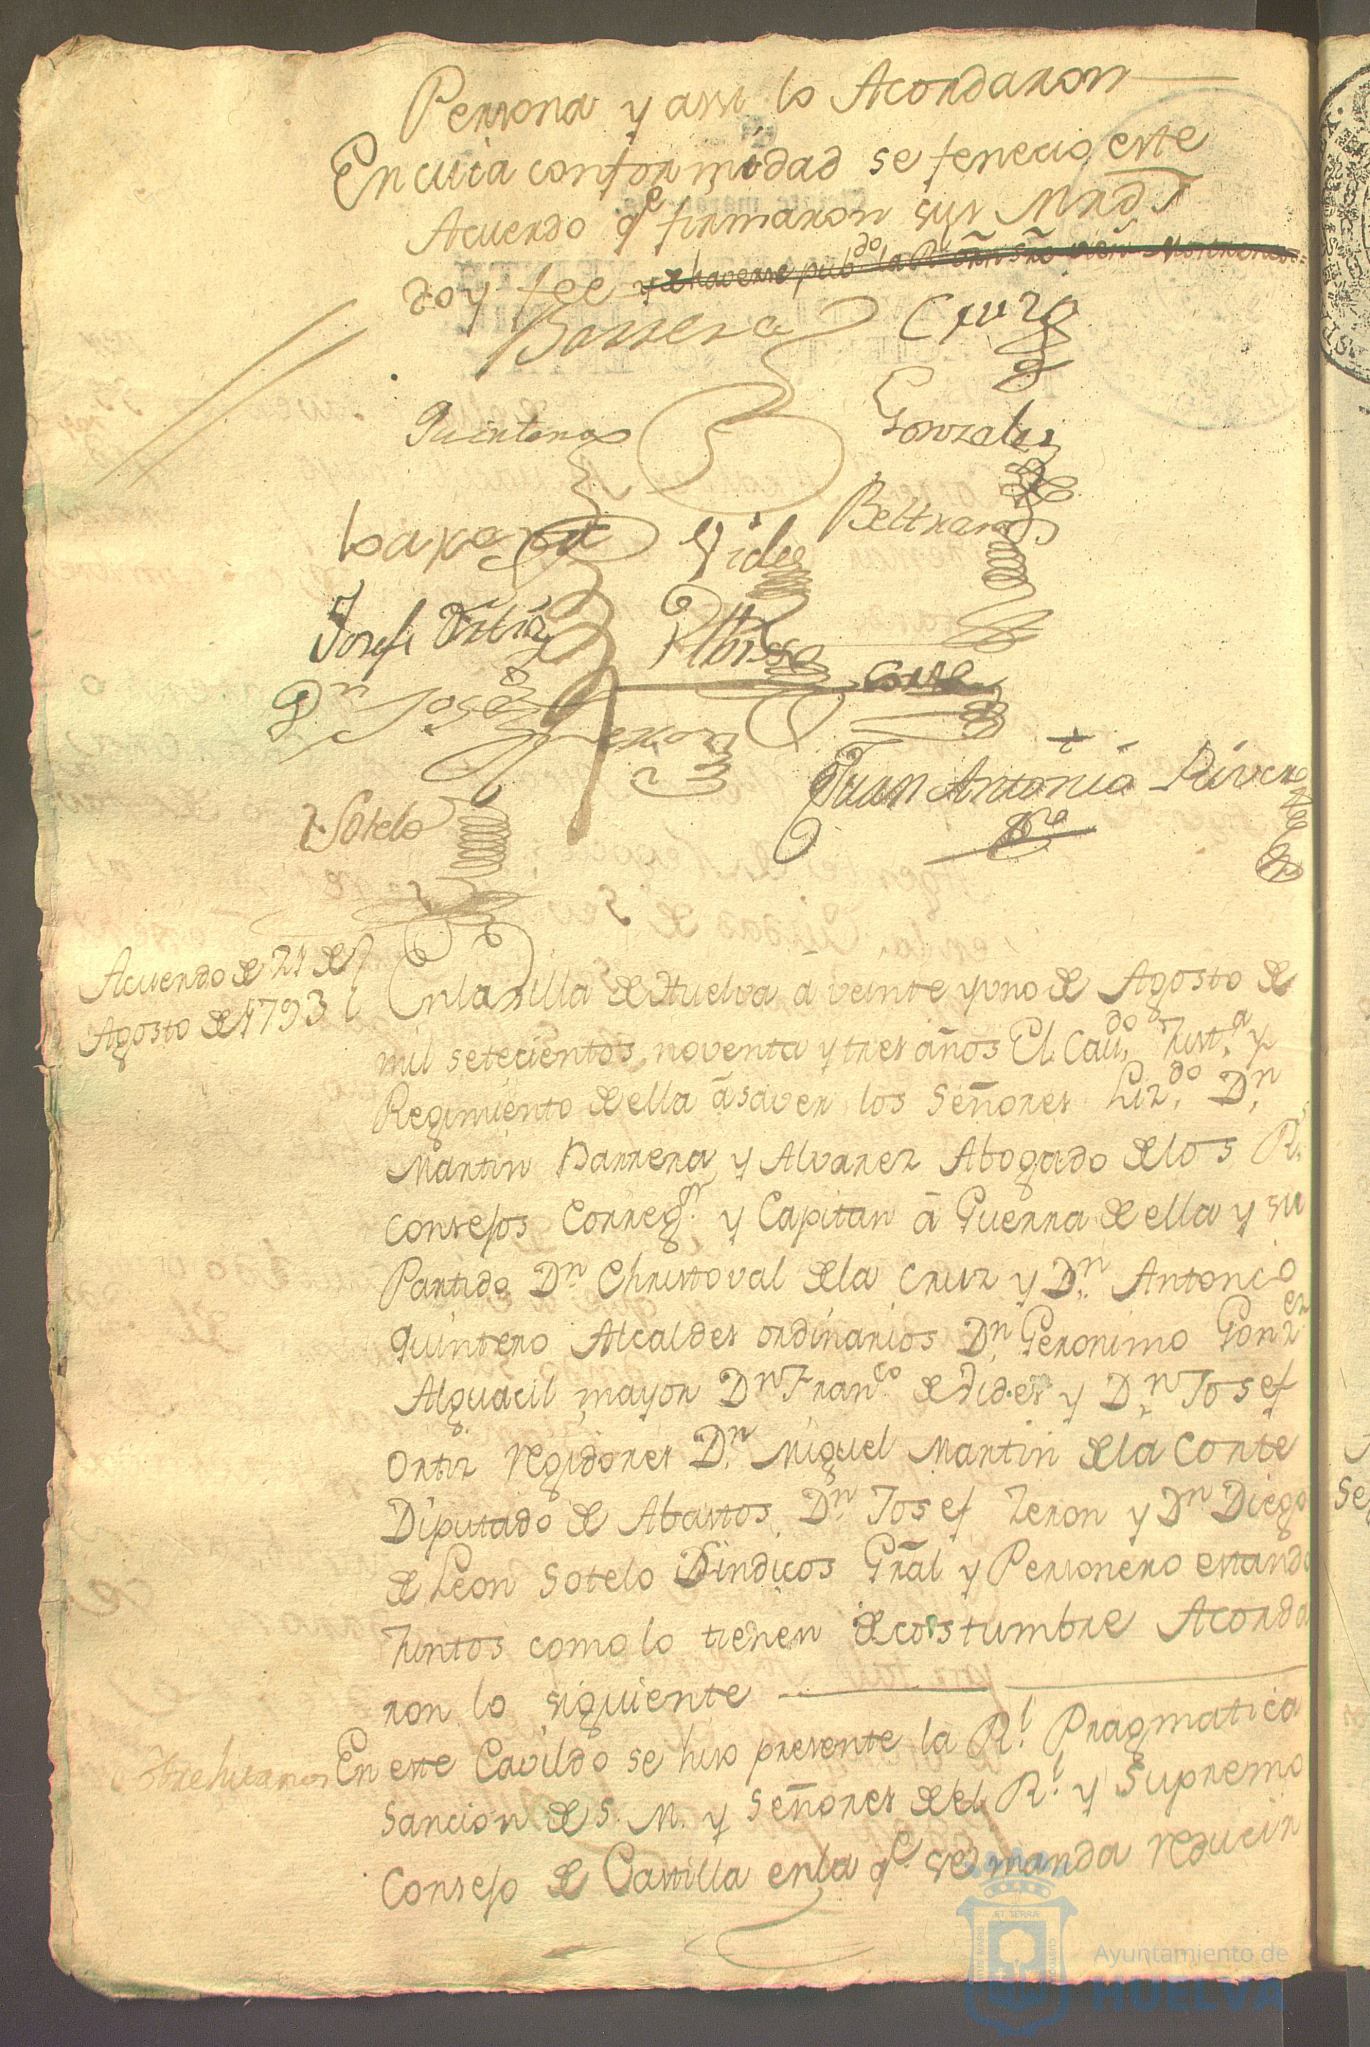 Persona y assi lo Acordaron
En cuia conformidad se fenecio este
Acuerdo qe firmaron sus Mrds
doy fee
Barrera Cruz
Quintero Gonzales
Beltran
Vides
Josef Ortiz
Corte
Dn Josef Zeron
Juan Antonio Rivera
Sotelo
Acuerdo de 21 de
Agosto de 1793
En la Villa de Huelva á veinte y uno de Agosto de
mil setecientos noventa y tres años El Cavdo Justa y
Regimiento de ella á saver los Señores Lizdo Dn
Martin Barrera y Alvarez Abogado de los Rs
Consejos Corregor y Capitan á Guerra de ella y su
Partido Dn Christoval de la Cruz y Dn Antonio
Quintero Alcaldes ordinarios Dn Geronimo Gonzez
Alguacil mayor Dn Franco de Vides y Dn Josef
Ortiz Regidores Dn Miguel Martin de la Corte
Diputado de Abastos Dn Josef Zeron y Dn Diego
de Leon Sotelo Sindicos Gral y Personero estando
Juntos como lo tienen de costumbre Acorda
ron lo siguiente
En este Cavildo se hiso presente la Rl Pragmatica
Sancion de S. M. y Señores del Rl y Supremo
Consejo de Castilla en la qe se manda reducir
Ayuntamiento de
HUELVA